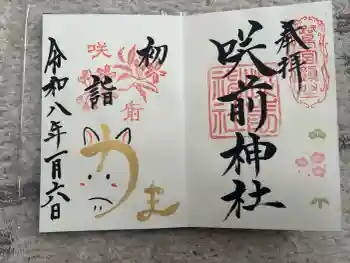 奉拝
咲前神社
初詣
咲前
うま
令和八年一月六日